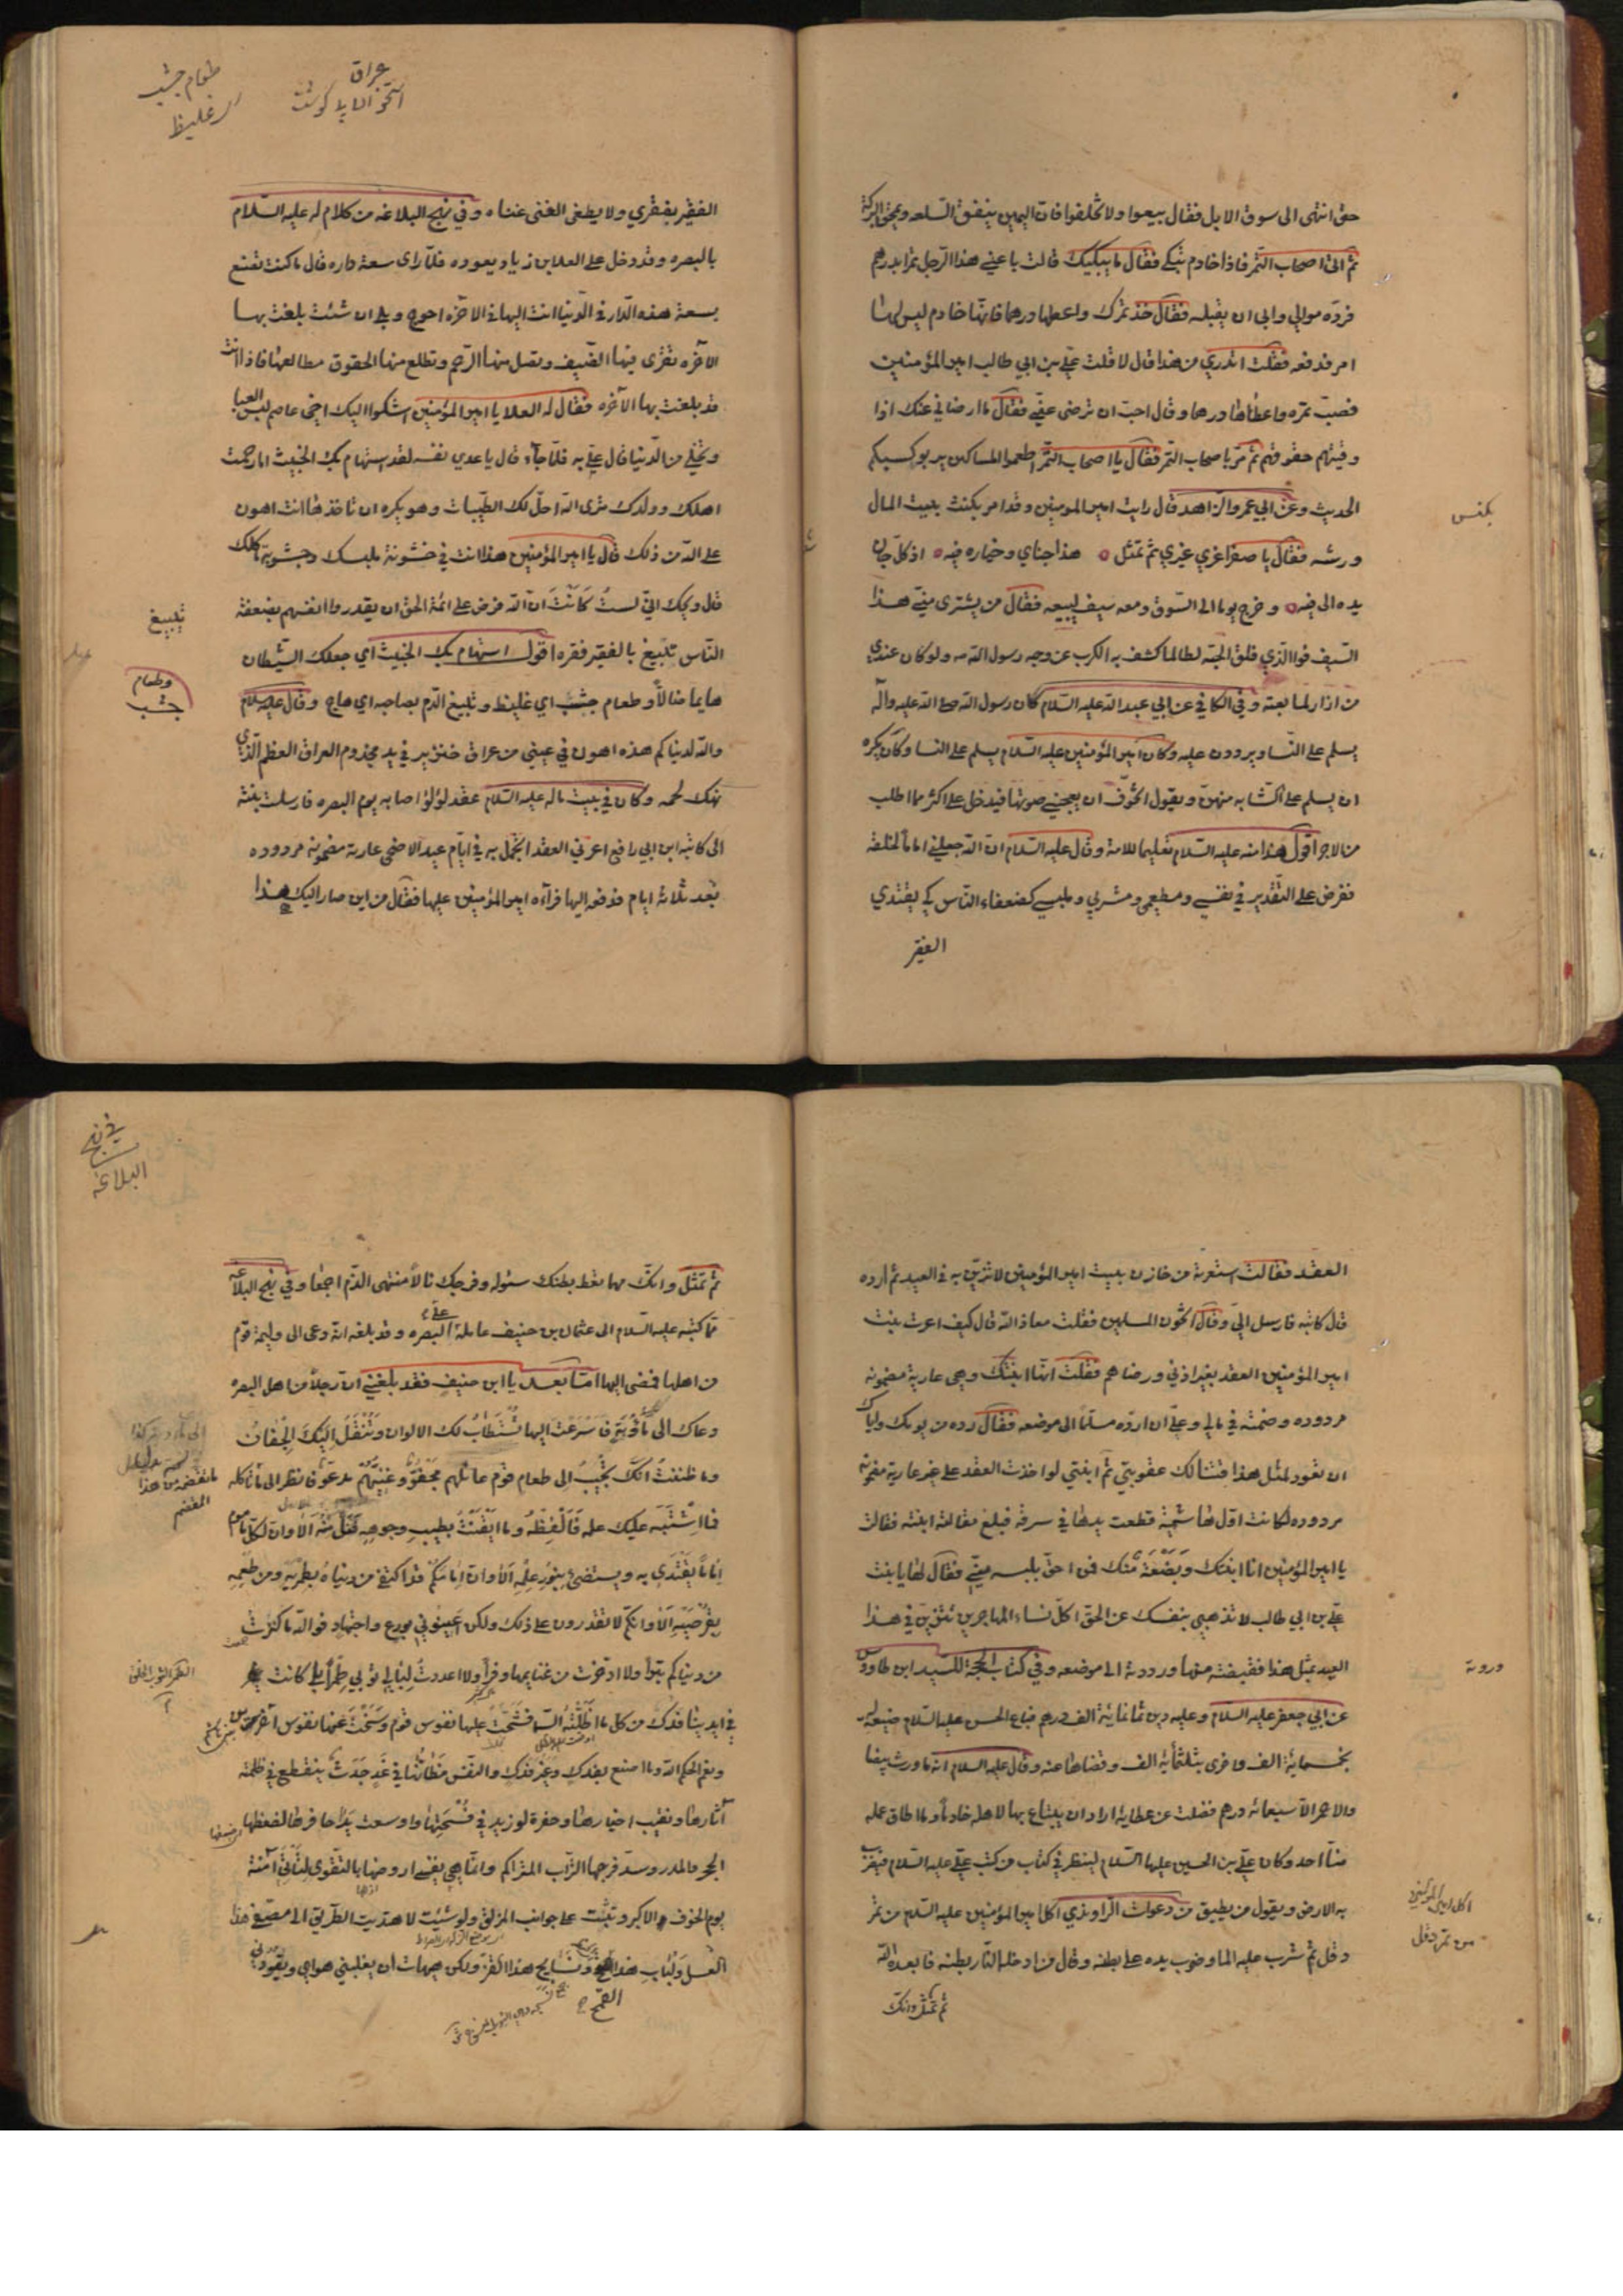 حتى انتهى الى سوق الابل فقال بيعوا ولا تحلفوا فان اليمين ينفق السلعه ويمحق البركة
ثم اتى اصحاب التمر فاذا خادم تبكي فقال ما يبكيك قالت باعني هذا الرجل تمرا بدرهم
فرده موالي وابى ان يقبله فقال خذ تمرك واعطها درهما فانها خادم ليس لها
امر فدفعه فقلت اتدري من هذا قال لا قلت علي بن ابي طالب امير المؤمنين
فصب تمره واعطاها درهما وقال احب ان ترضى عني فقال ما ارضاني عنك اذا
وفيتهم حقوقهم ثم مر باصحاب التمر فقال يا اصحاب التمر اطعموا المساكين يربو كسبكم
الحديث وعن ابي عمرو الزاهد قال رايت امير المومنين وقد امر بكنس بيت المال
ورشه فقال يا صفرا غري غيري ثم تمثل هذا جناي وخياره فيه اذ كل جان
يده الى فيه وخرج يوما الى السوق ومعه سيف ليبيعه فقال من يشترى مني هذا
السيف فوالذي فلق الحبة لطالما كشف به الكرب عن وجه رسول الله ولو كان عندي
من ازار لما بعته وفي الكافي عن ابي عبد الله عليه السلام كان رسول الله صلى الله عليه وآله
يسلم على النسا ويرددن عليه وكان امير المؤمنين عليه السلام يسلم على النسا وكان يكره
ان يسلم على الشابه منهن ويقول اتخوف ان يعجبني صوتها فيدخل على اكثر مما اطلب
من الاجر اقول هذا منه عليه السلام تعليما للامة وقال عليه السلام ان الله جعلني اماما لخلقه
ففرض علي التقدير في نفسي ومطعمي ومشربي وملبسي كضعفاء الناس كي يقتدي
الفقير
بكنس
عراق
استخوان با گوشت
طعام جشب
اي غليظ
الفقير بفقري ولا يطغى الغنى غناه وفي نهج البلاغه من كلام له عليه السلام
بالبصره وقد دخل على العلا بن زياد يعوده فلما راى سعة داره قال ما كنت تصنع
بسعة هذه الدار في الدنيا انت اليها في الآخره احوج وبلى ان شئت بلغت بها
الآخره تقرى فيها الضيف وتصل منها الرحم وتطلع منها الحقوق مطالعها فاذا انت
قد بلغت بها الآخره فقال له العلا يا امير المؤمنين اشكوا اليك اخي عاصم لبس العبا
وتخلى من الدنيا قال علي به فلما جاء قال يا عدي نفسه لقد استهام بك الخبيث اما رحمت
اهلك وولدك ترى الله احل لك الطيبات وهو يكره ان تاخذها انت اهون
على الله من ذلك قال يا امير المؤمنين هذا انت في خشونة ملبسك وجشوبة ماكلك
قال ويحك اني لست كانت ان الله فرض على ائمة الحق ان يقدروا انفسهم بضعفة
الناس تبيغ بالفقير فقره اقول استهام بك الخبيث اي جعلك الشيطان
هايما ضالا وطعام جشب اي غليظ وتبيغ الدم بصاحبه اي هاج وقال عليه السلام
والله لدنياكم هذه اهون في عيني من عراق خنزير في يد مجذوم العراق العظم الذي
نهك لحمه وكان في بيت ماله عليه السلام عقد لؤلؤ اصابه يوم البصره فارسلت بنته
الى كاتبه ابن ابي رافع اعرني العقد اتجمل به في ايام عيد الاضحى عارية مضمونه مردوده
بعد ثلاثة ايام فدفعه اليها فرآه امير المؤمنين عليها فقال من اين صار اليك هذا
تبيغ
وطعام
جشب
العقد فقالت استعرته من خازن بيت امير المؤمنين لاتزين به في العيد ثم ارده
قال كاتبه فارسل الي وقال اتخون المسلمين فقلت معاذ الله قال كيف اعرت بنت
امير المؤمنين العقد بغير اذني ورضاهم فقلت انها ابنتك وهي عارية مضمونه
مردوده وضمنته في مالي وعلي ان ارده مسلما الى موضعه فقال رده من يومك واياك
ان تعود لمثل هذا فتنالك عقوبتي ثم ابنتي لو اخذت العقد على غير عارية مضمونه
مردوده لكانت اول هاشمية قطعت يدها في سرقه فبلغ مقالته ابنته فقالت
يا امير المؤمنين انا ابنتك وبضعة منك فمن احق بلبسه مني فقال لها يا بنت
علي بن ابي طالب لا تذهبي بنفسك عن الحق اكل نساء المهاجرين تتزين في هذا
العيد بمثل هذا فقبضته منها ورددته الى موضعه وفي كتاب الحجة للسيد ابن طاووس
عن ابي جعفر عليه السلام وعليه دين ثمانماية الف درهم فباع الحسن عليه السلام ضيعة له
بخمسماية الف واخرى بثلثمأية الف وقضاها عنه وقال عليه السلام انه ما ورث بيضا
ولا حمرا الا سبعمائه درهم فضلت عن عطايه اراد ان يبتاع بها لاهله خادما وما اطاق عمله
منا احد وكان علي بن الحسين عليها السلام لينظر في كتاب من كتب علي عليه السلام فيضرب
به الارض ويقول من يطيق من دعوات الراوندي اكل امير المؤمنين عليه السلم من تمر
دقل ثم شرب عليه الما وضرب يده على بطنه وقال من ادخله النار بطنه فابعده الله
ثم تمثل وانك
ورددته
اكل امير المؤمنين
من تمر دقل
في نهج
البلاغه
ثم تمثل وانك مهما تعط بطنك سئوله وفرجك نالا منتهى الذم اجمعا وفي نهج البلاغه
مما كتبه عليه السلام الى عثمان بن حنيف عامله على البصره وقد بلغه انه دعى الى وليمة قوم
من اهلها فمضى اليها اما بعد يا ابن حنيف فقد بلغني ان رجلا من اهل البصره
دعاك الى مأدبة فاسرعت اليها تستطاب لك الالوان وتنقل اليك الجفان
وما ظننت انك تجيب الى طعام قوم عائلهم مجفو وغنيهم مدعو فانظر الى ما تاكله
فما اشتبه عليك علمه فالفظه وما ايقنت بطيب وجوهه فنل منه الا وان لكل ماموم
اماما يقتدى به ويستضئ بنور علمه الا وان امامكم قد اكتفى من دنياه بطمريه ومن طعمه
بقرصيه الا وانكم لا تقدرون على ذلك ولكن اعينوني بورع واجتهاد فوالله ما كنزت
من دنياكم تبرا ولا ادخرت من غنايمها وفرا ولا اعددت لبالي ثوبي طمرا بلى كانت
في ايدينا فدك من كل ما اظلته السما فشحت عليها نفوس قوم وسخت عنها نفوس آخرين
ونعم الحكم الله وما اصنع بفدك وغير فدك والنفس مظانها في غد جدث ينقطع في ظلمته
آثارها وتغيب اخبارها وحفرة لو زيد في فسحتها واوسعت يدا حافرها لضغطها
الحجر والمدر وسد فرجها التراب المتراكم وانما هي نفسي اروضها بالتقوى لتأتي آمنة
يوم الخوف الاكبر وتثبت على جوانب المزلق ولو شئت لاهتديت الطريق الى مصفى هذا
العسل ولباب هذا القمح ونسايج هذا القز ولكن هيهات ان يغلبني هواي ويقودني
القمح
الطمر الثوب الخلق